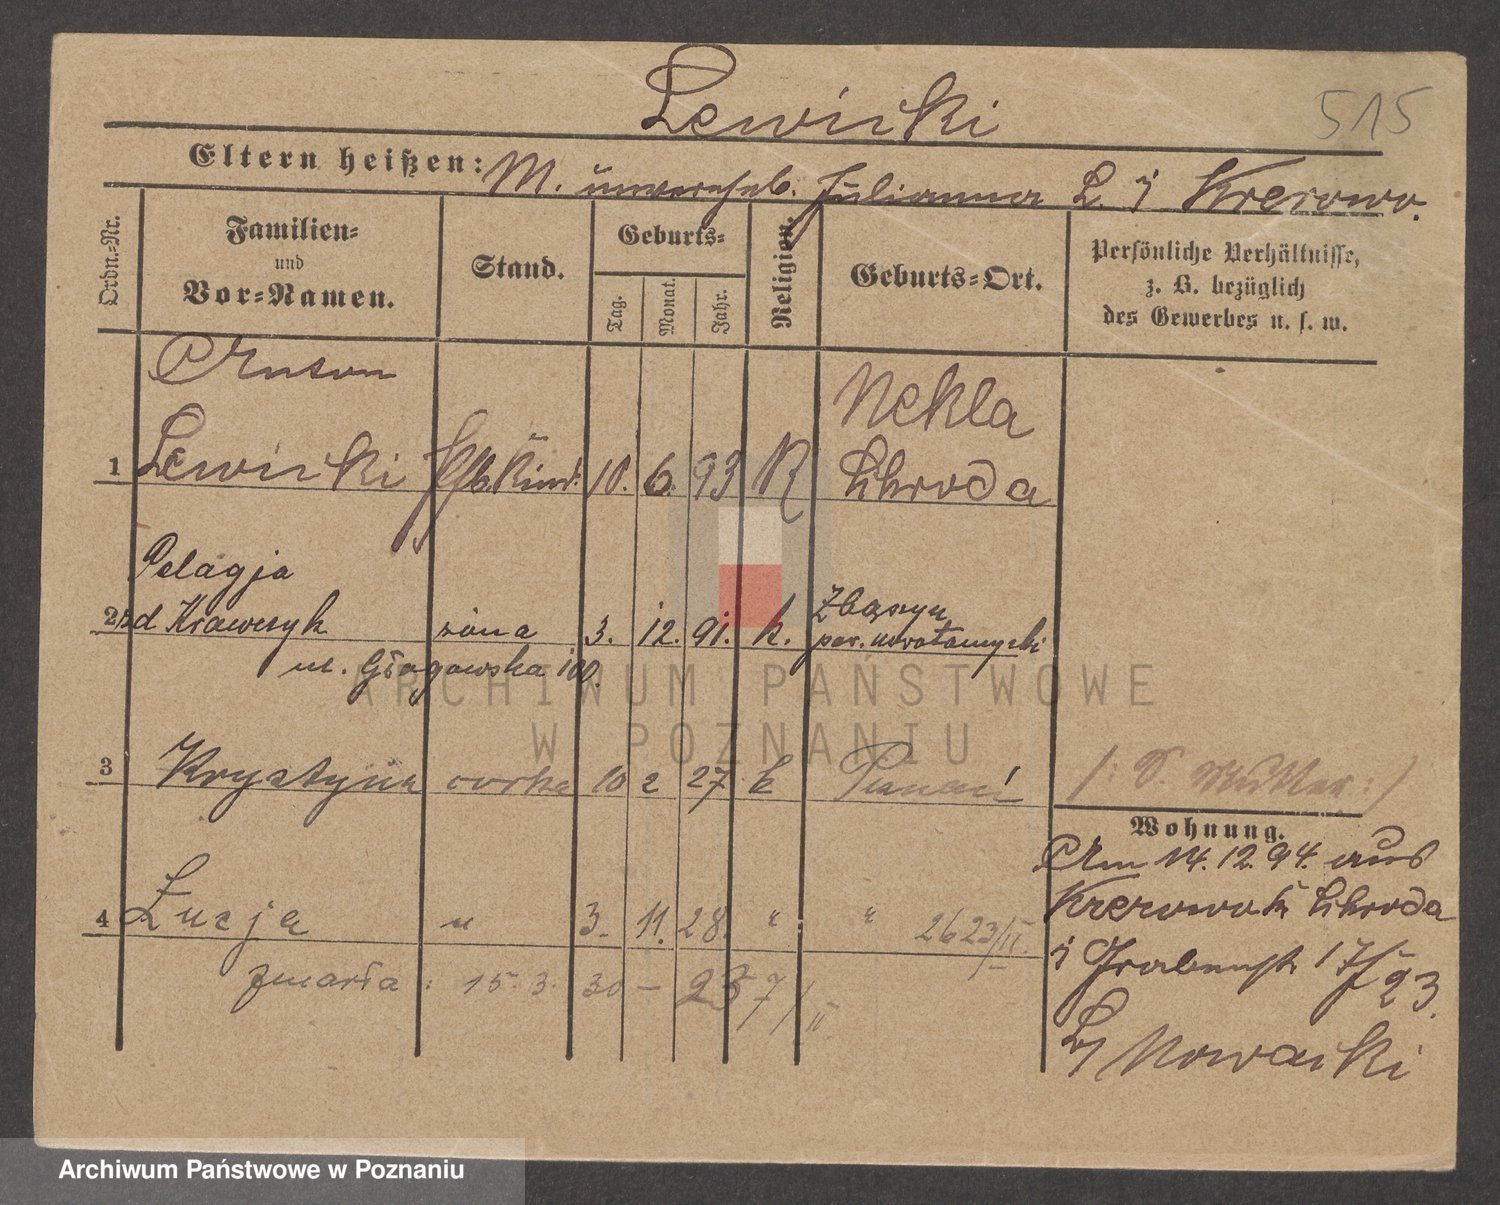 Lewicki
515
Eltern heißen: M. unverehel. Julianna L. i Krerowo.
Ordn.-Nr.
Familien-
und
Vor-Namen.
Stand.
Geburts-
Tag.
Monat.
Jahr.
Religion.
Geburts-Ort.
Persönliche Verhältnisse,
z. B. bezüglich
des Gewerbes u. s. w.
Anton
Nekla
1 Lewicki Kind 10. 6. 93 K Schroda
Pelagja
2 zd Krawczyk żona 3. 12. 91. k. Zbąszyń
pow. nowotomyski
ul. Głogowska 100.
3 Krystyna córka 10 2 27 k Poznań
4 Łucja " 3. 11. 28. " " 2623/II.
zmarła: 15. 3. 30 - 2357/II
(: S. Mutter :)
Wohnung.
Am 14. 12. 94. aus
Krerowo Kr Schroda
i Grabenstr 17/
23.
b/ Nowacki
ARCHIWUM PAŃSTWOWE
W POZNANIU
Archiwum Państwowe w Poznaniu